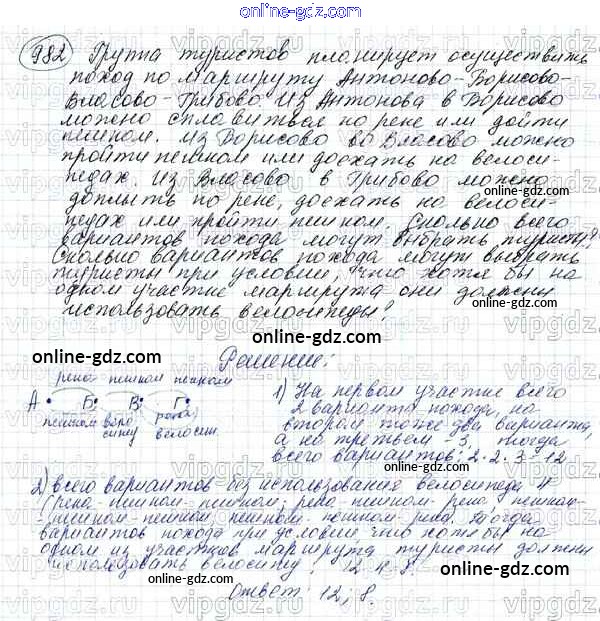 online-gdz.com
982 Группа туристов планирует осуществить
поход по маршруту Антоново-Борисово-
Власово-Грибово. Из Антонова в Борисово
можно сплавиться по реке или дойти
пешком. Из Борисово во Власово можно
пройти пешком или доехать на велоси-
педах. Из Власово в Грибово можно
доплыть по реке, доехать на велоси-
педах или пройти пешком. Сколько всего
вариантов похода могут выбрать туристы?
Сколько вариантов похода могут выбрать
туристы при условии, что хотя бы на
одном участке маршрута они должны
использовать велосипеды?
online-gdz.com
online-gdz.com
Решение:
река пешком пешком
А Б В Г
пешком вело сипед река
велосип.
1) На первом участке всего
2 варианта похода, на
втором тоже два варианта,
а на третьем - 3, тогда
всего вариантов: 2·2·3=12
2) всего вариантов без использования велосипеда 4
(река-пешком-пешком; река-пешком-река, пешком-
-пешком-пешком пешком-пешком-река. Тогда
вариантов похода при условии, что хотя бы на
одном из участков маршрута туристы должны
использовать велосипед: 12-4=8.
Ответ: 12; 8.
online-gdz.com
online-gdz.com